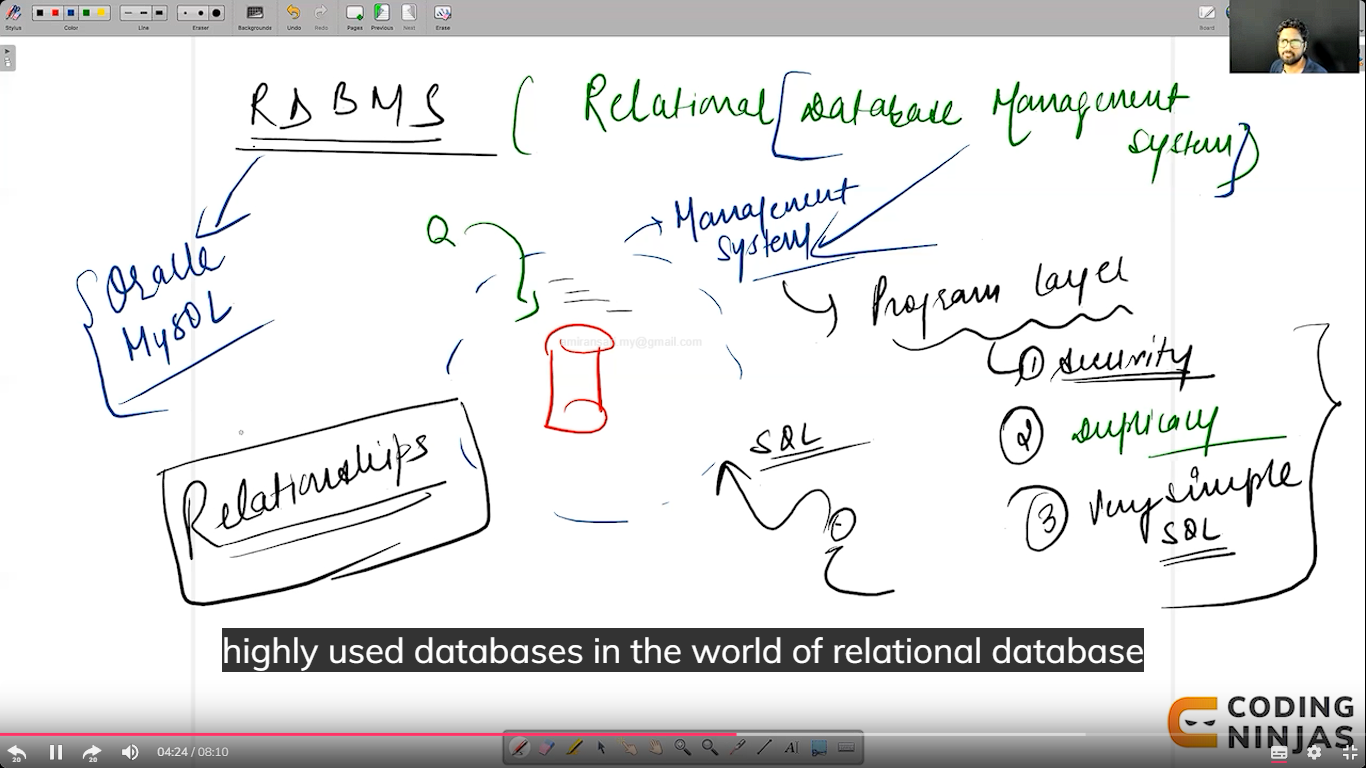 Stylus
Color
Line
Eraser
Backgrounds
Undo
Redo
Pages
Previous
Next
Erase
Board
RDBMS ( Relational [Database Management
System])
Management
System
Q
Oracle
MySQL
Program layer
① Security
② Duplicacy
③ Very simple
SQL
SQL
Relationships
my@gmail.com
highly used databases in the world of relational database
CODING
NINJAS
20
20
04:24 / 08:10